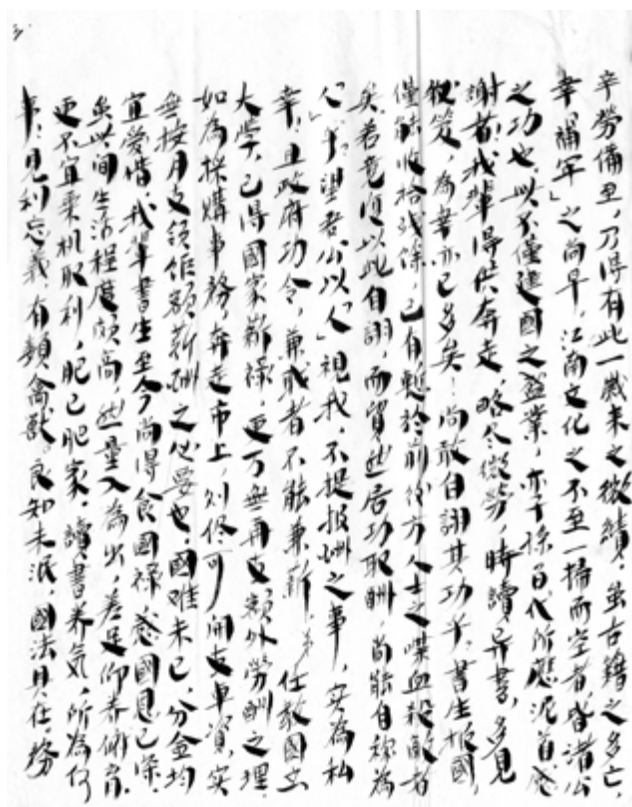 辛勞備至,乃得有此一歲來之微績,雖古籍之多亡,
幸「補牢」之尚早,江南文化之不至一掃而空者,皆諸公
之功也。此不僅建國之盛業,亦子孫百代所應泥首感
謝者。我輩得供奔走,略盡微勞,時讀異書,多見
秘笈,為幸亦已多矣!尚敢自詡其功乎?書生報國,
僅能收拾殘餘,已有慙於前後方人士之喋血殺敵者
矣。若竟復以此自詡,而貿然居功取酬,尚能自稱為
「人」乎?望諸公以「人」視我,不提報酬之事,實為私
幸。且政府功令,兼職者不能兼薪,弟任教國立
大學,已得國家薪祿,更萬無再支額外勞酬之理。
如為採購事務,奔走市上,則儘可開支車資,實
無按月支領館額薪酬之必要也。國難未已,分金均
宜愛惜。我輩書生至今尚得食國祿,感國恩已深
矣。此間生活程度頗高,然量入為出,差足仰養俯育,
更不宜乘機取利,肥己肥家。讀書養氣,所為何
事?見利忘義,有類禽獸。良知未泯,國法具在。務